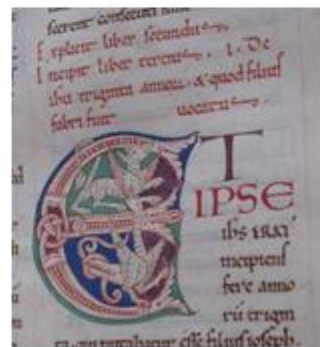 fecerent consecuti
Explicit liber secundus
Incipit liber tercius I. De
ihu triginta annorum & quod filius
fabri fuit uocatus
ET
IPSE
ihs ERAT
incipiens
fere anno
rū trigin
ta qui putabatur esse filius ioseph.